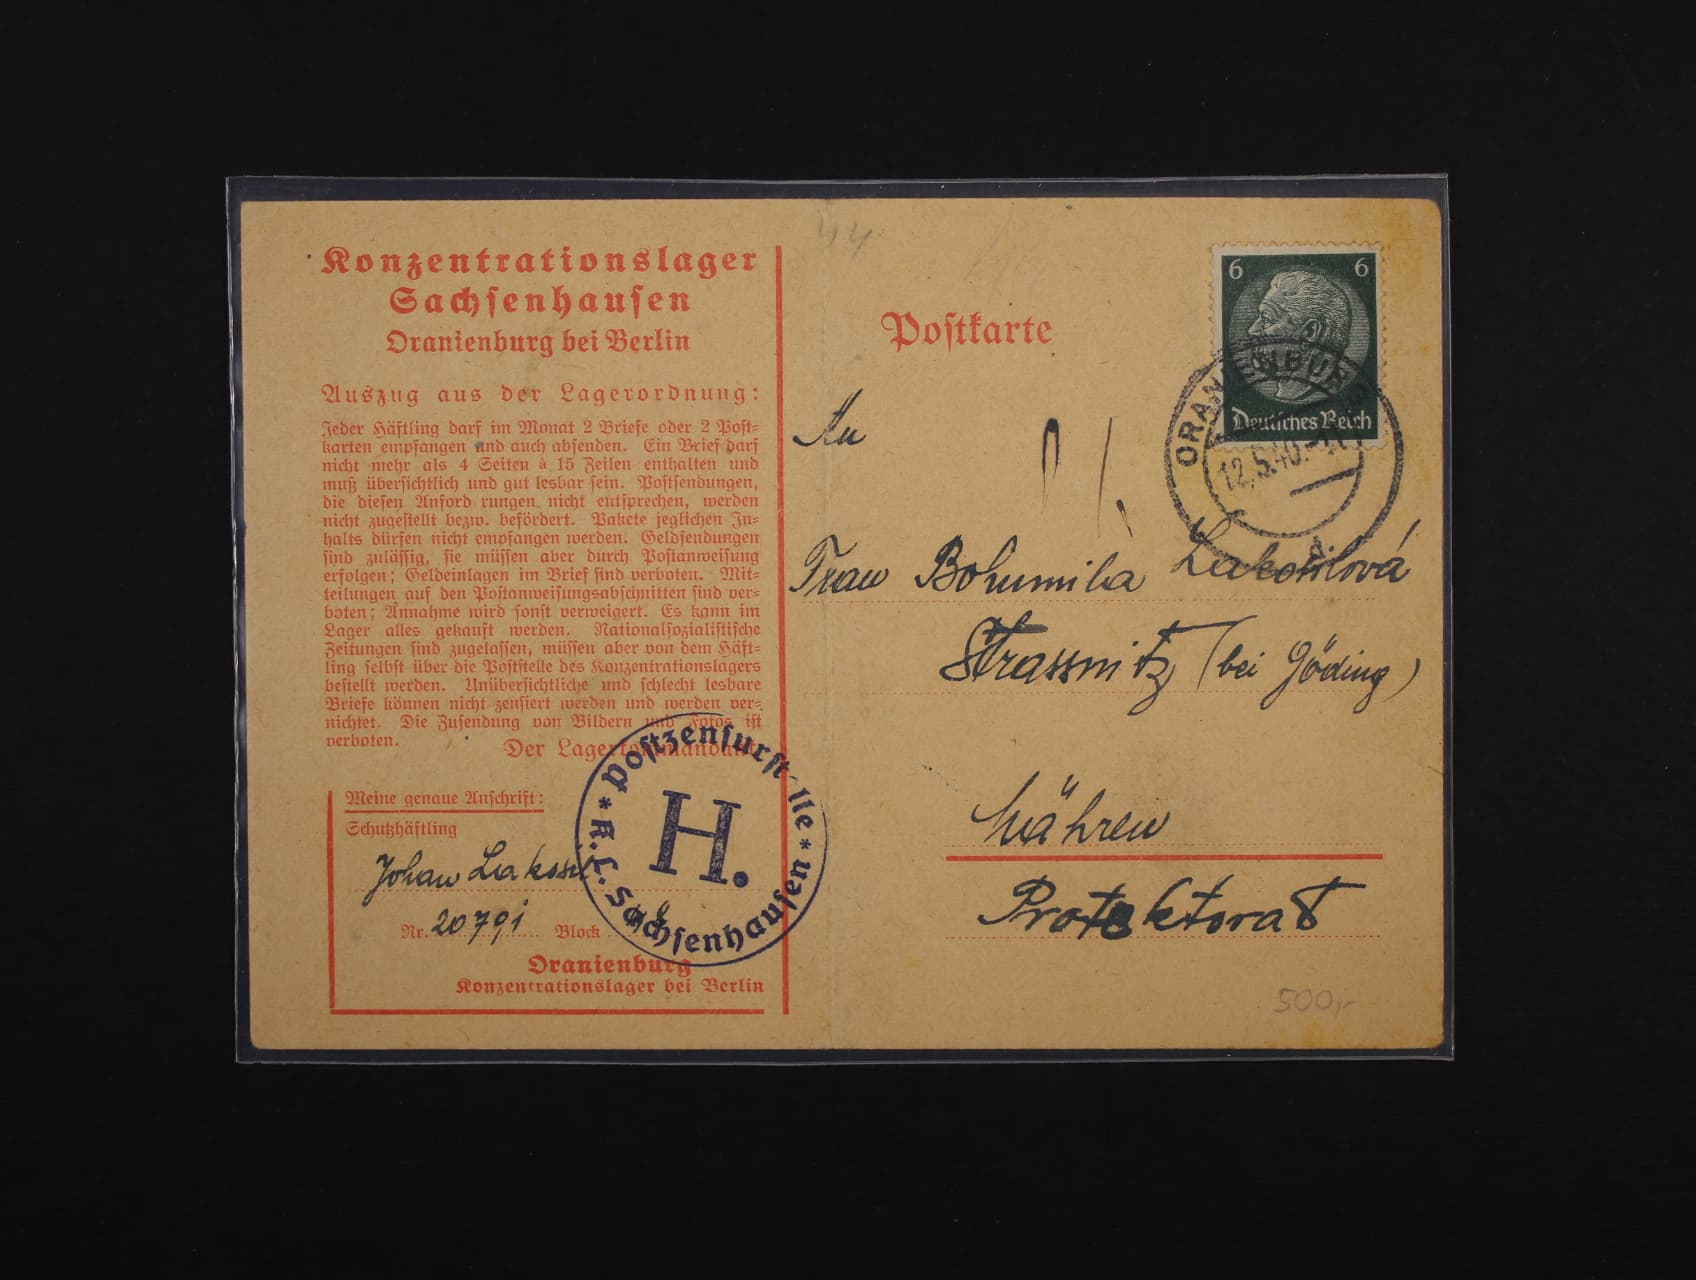 Konzentrationslager
Sachsenhausen
Oranienburg bei Berlin
Auszug aus der Lagerordnung:
Jeder Häftling darf im Monat 2 Briefe oder 2 Post=
karten empfangen und auch absenden. Ein Brief darf
nicht mehr als 4 Seiten à 15 Zeilen enthalten und
muß übersichtlich und gut lesbar sein. Postsendungen,
die diesen Anford rungen nicht entsprechen, werden
nicht zugestellt bezw. befördert. Pakete jeglichen In=
halts dürfen nicht empfangen werden. Geldsendungen
sind zulässig, sie müssen aber durch Postanweisung
erfolgen; Geldeinlagen im Brief sind verboten. Mit=
teilungen auf den Postanweisungsabschnitten sind ver=
boten; Annahme wird sonst verweigert. Es kann im
Lager alles gekauft werden. Nationalsozialistische
Zeitungen sind zugelassen, müssen aber von dem Häft=
ling selbst über die Poststelle des Konzentrationslagers
bestellt werden. Unübersichtliche und schlecht lesbare
Briefe können nicht zensiert werden und werden ver=
nichtet. Die Zusendung von Bildern und Fotos ist
verboten.
Der Lagerkommandant
Meine genaue Anschrift:
Schutzhäftling
Johan
Nr. 20791 Block
Oranienburg
Konzentrationslager bei Berlin
Postzensurstelle
H.
* K.L. Sachsenhausen *
44
Postkarte
6 6
Deutsches Reich
ORANIENBURG
12.5.40
An
Frau Bohumila
Strassnitz (bei Göding)
Mähren
Protektorat
500,-